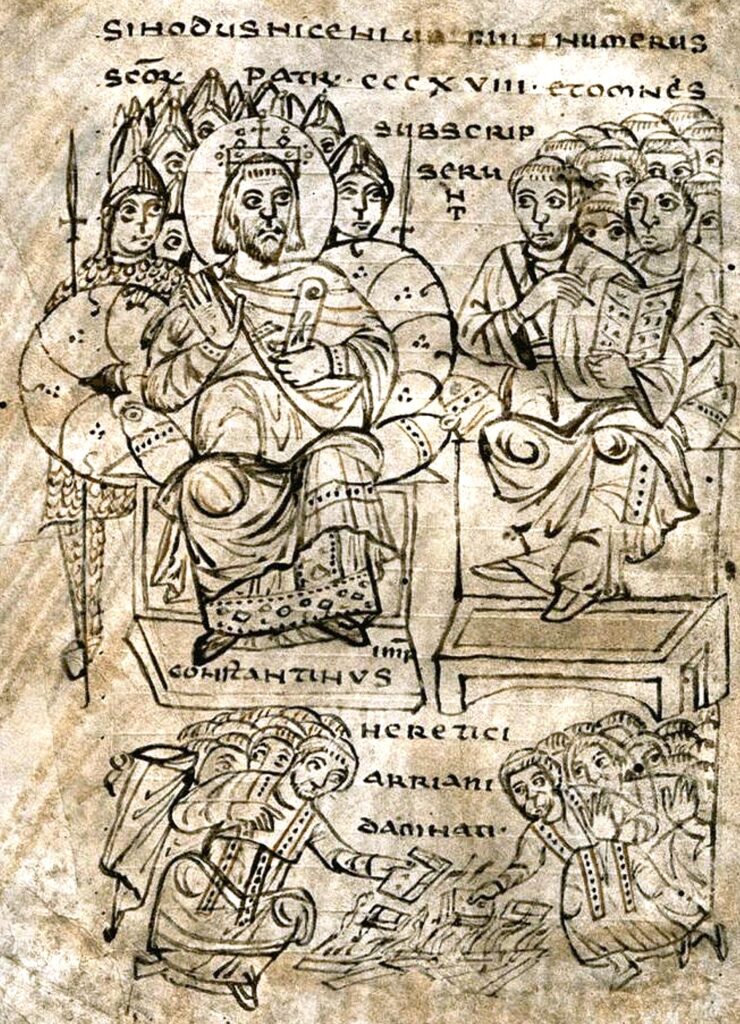 SINODUS NICENI NUMERUS
SCOR̄ PATR · CCCXVIII · ET OMNES
SUBSCRIP
SERU
N
T
IMP̄
CONSTANTINVS
HERETICI
ARRIANI
DAMNATI ·